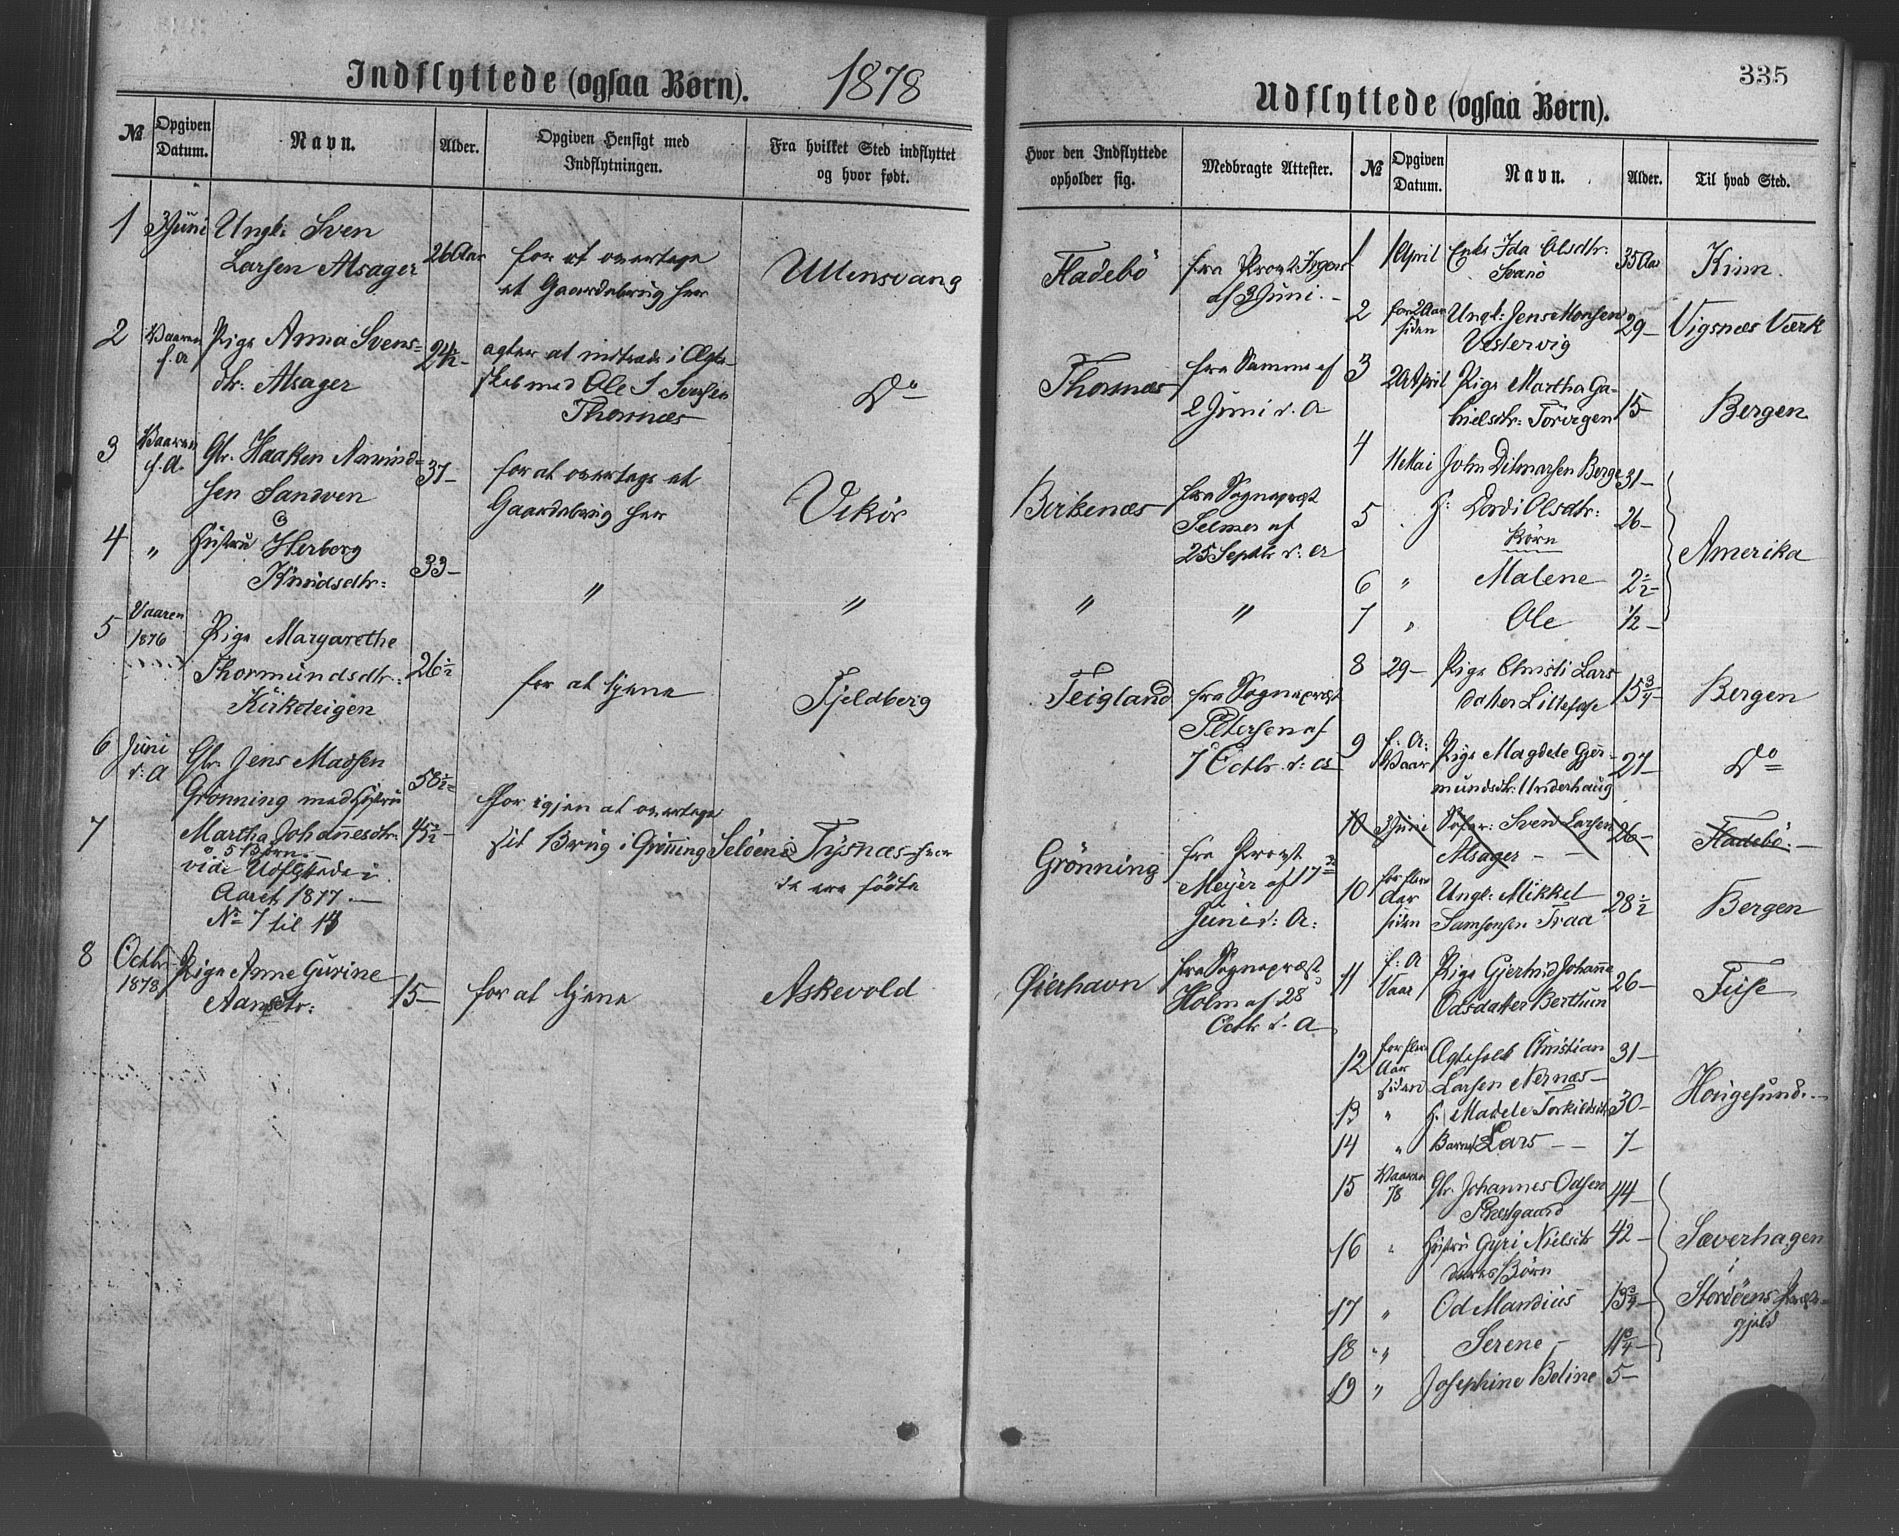 Indflyttede (ogsaa Børn).
1878
№
Opgiven Datum.
Navn.
Alder.
Opgiven Hensigt med Indflytningen.
Fra hvilket Sted indflyttet og hvor født.
1 3 Juni Ungk: Sven
Larsen Alsager 26 Aar for at overtage
et Gaardebrug her Ullensvang
2 Vaaren f. A Pige Anna Svens-
dtr: Alsager 24½ agter at indtræde i Ægte-
skab med Ole I. Iversen
Thornæs Do
3 Vaaren f. A. Gbr. Haaken Amund-
sen Sandven 37 for at overtage et
Gaardebrug her Vikör
4 " Hustru Herborg
Knudsdtr: 33 " "
5 Vaaren 1876 Pige Margarethe
Thormundsdtr:
Kirketeigen 26½ for at tjene Fjeldberg
6 Juni d: A Gbr. Jens Madsen
Grönning med Hustru 58½ for igjen at overtage
7 Martha Johannesdtr. 45½ sit Brug i Grönning Selöen i Tysnæs hvor
o 5 Börn. de ere födte
vide Udflyttede i
Aaret 1877.
No 7 til 13
8 Octbr 1878 Pige Anne Gurine
15 for at tjene Askevold
335
Udflyttede (ogsaa Børn).
Hvor den Indflyttede opholder sig.
Medbragte Attester.
№
Opgiven Datum.
Navn.
Alder.
Til hvad Sted.
Fladebö fra Provst
af 3 Juni.
Thornæs fra Samme af
2 Juni d. A
Birkenæs fra Sognepræst
Selmer af
25 Septbr d: A
" "
Teigland fra Sognepræst
Petersen af
7 Octbr. d: A
Grönning fra Provst
Meyer af 17
Juni d: A:
Øierhavn fra Sognepræst
Holm af 28
Octbr d. A
1 1 April Enke Ida Olsdtr:
Svanö 35 Aar Kinn.
2 for 2 Aar siden Ungk: Jens Monsen
Vestervig 29 Vigsnæs Værk
3 20 April Pige Martha Ga-
brielsdtr: 15 Bergen
4 11 Mai John Ditmarsen Berge 31
5 H: Dordi Olsdtr: 26
Börn Amerika
6 " Malene 2½
7 " Ole ½
8 29 Pige Christi Lars
datter 15¾ Bergen
9 f: A: Vaar Pige Magdele Gjer-
mundsdtr: Underhaug 27 Do
10 3 Juni Sven Larsen 26 Fladebö
Alsager
10 for flere Aar siden Ungk: Mikkel
Samsonsen Traa 28½ Bergen
11 f: A Vaar Pige Gjertrud Johanne
Odsdatter 26 Fuse
12 for flere Aar siden Ægtefolk Christian 31
Larsen Nernæs
13 " H. Madele Torkildsdtr 30 Hougesund.
14 " Barn Lars 7
15 Vaaren 78 Gbr. Johannes Odsen 44
Præstgaard
16 " Hustru Gyri Nielsdtr 42 Sæverhagen
deres Börn
17 " Od Mandius 13¾ Stordöens Præste-
gjeld
18 " Serene 11¾
19 " Josephine Boline 5